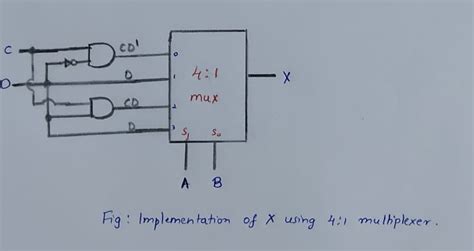 C
CD'
0
4:1
D
D
1
X
mux
CD
2
D
3
S1
S0
A
B
Fig: Implementation of X using 4:1 multiplexer.